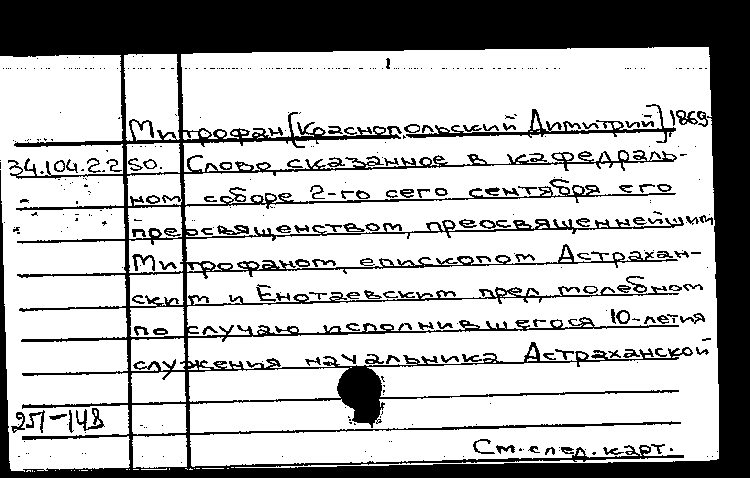 Митрофан, [Краснопольский Димитрий], 1869-
34.104.2.2 SO. Слово, сказанное в кафедраль-
ном соборе 2-го сего сентября его
преосвященством, преосвященнейшим
Митрофаном, епископом Астрахан-
ским и Енотаевским пред молебном
по случаю исполнившегося 10-летия
служения начальника Астраханской
251-148
См. след. карт.